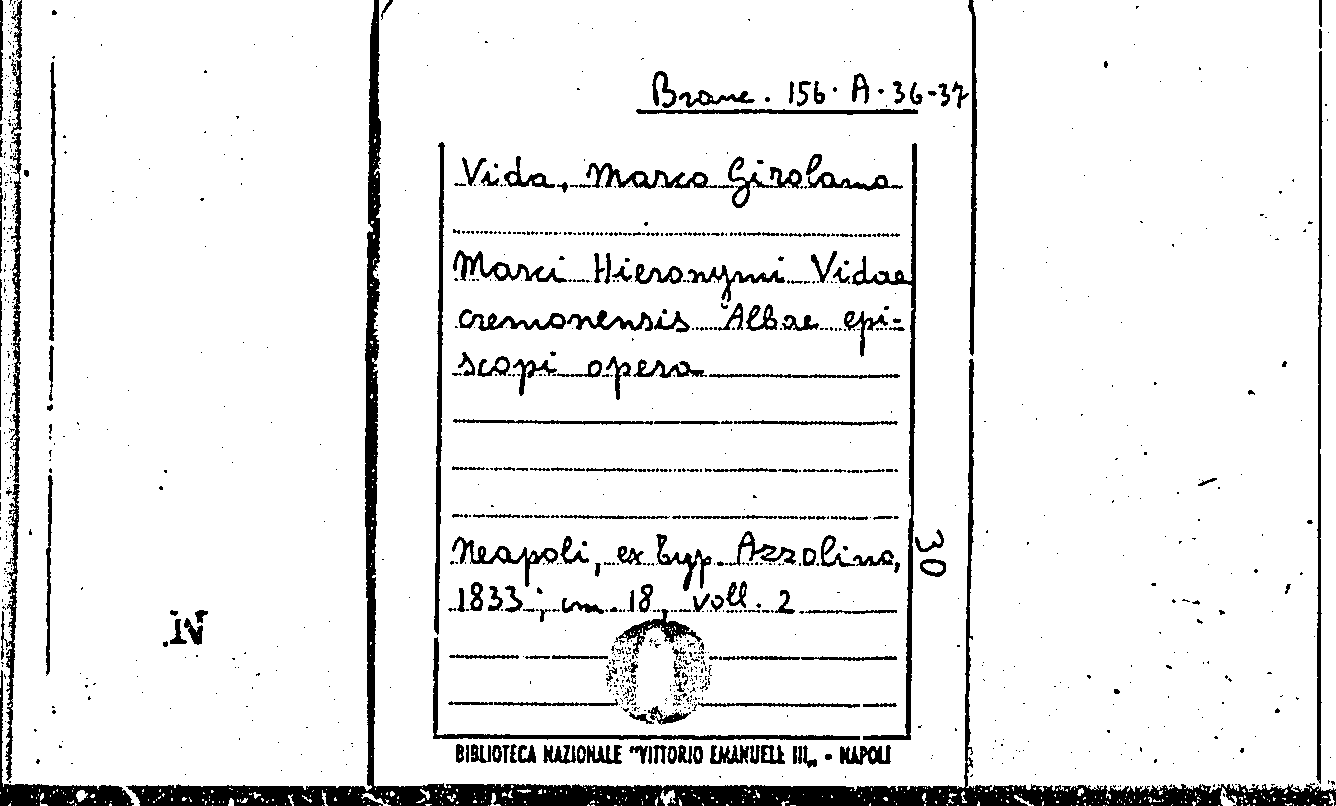 Branc. 156. A. 36-37
Vida, Marco Girolamo
Marci Hieronymi Vidae
cremonensis Albae epi-
scopi opera
Neapoli, ex typ. Azzolino,
1833; cm. 18, voll. 2
30
BIBLIOTECA NAZIONALE "VITTORIO EMANUELE III„ - NAPOLI